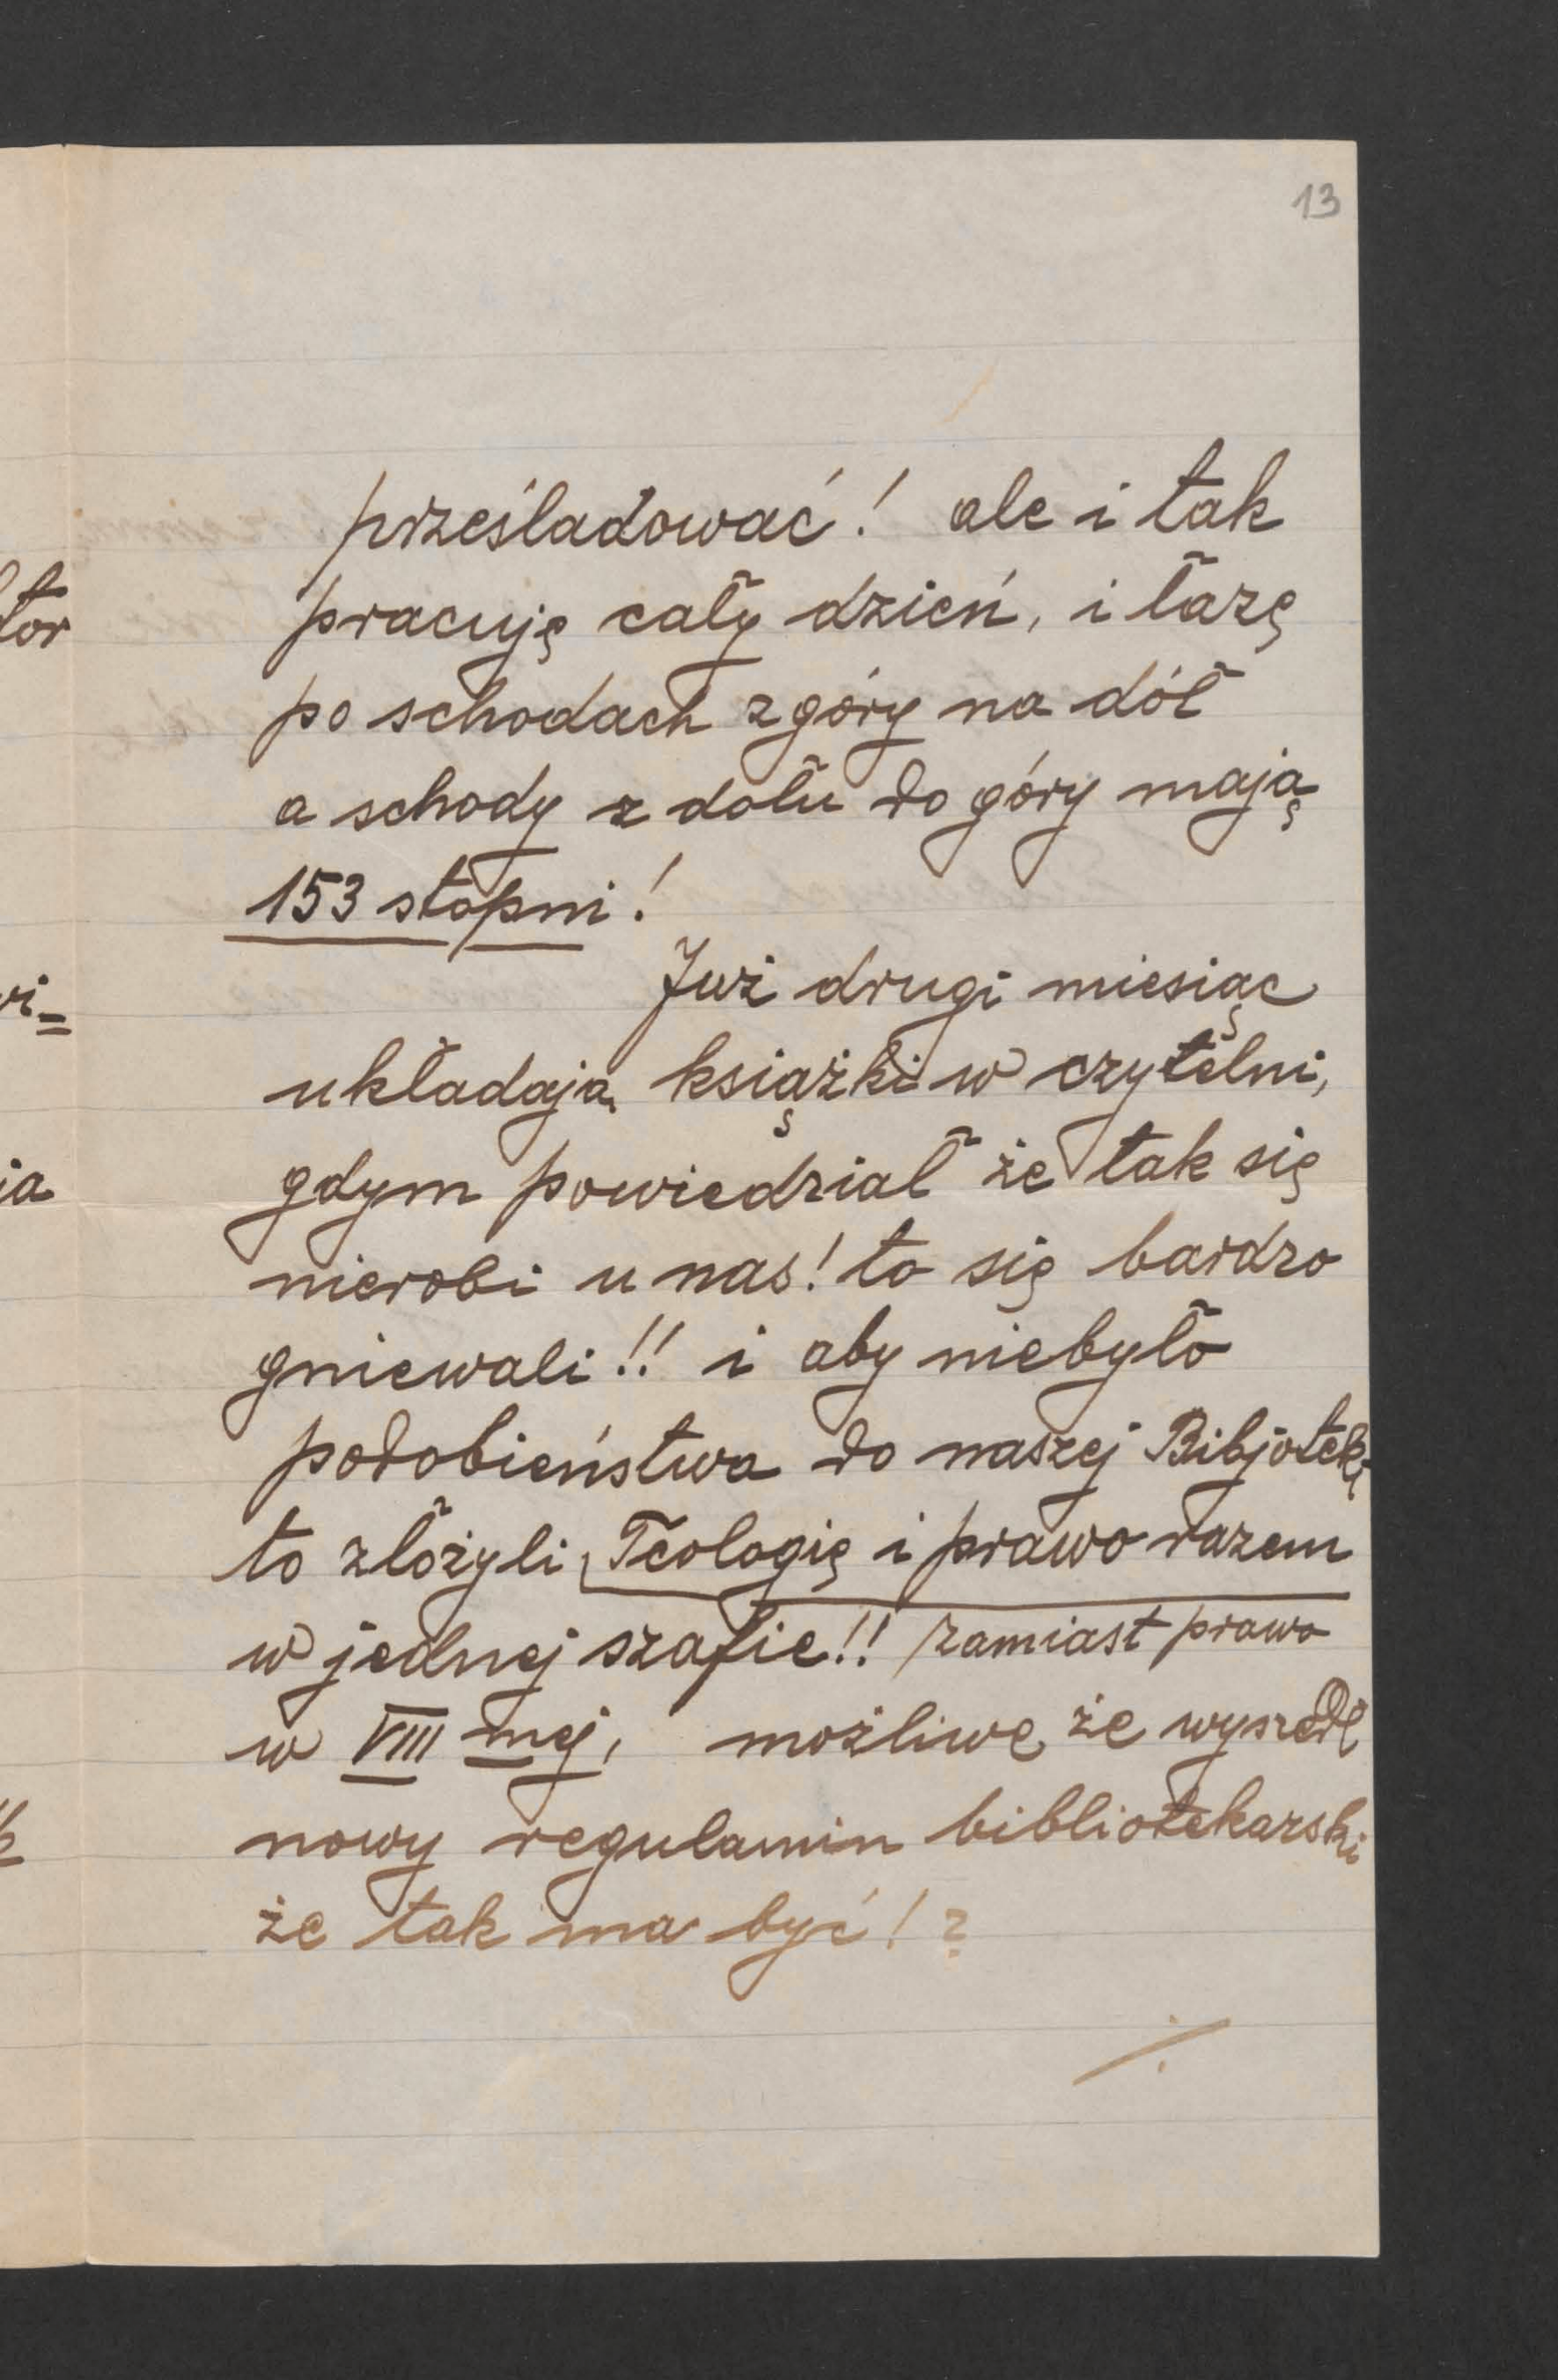 13
prześladować! ale i tak
pracuję cały dzień, i łazę
po schodach z góry na dół
a schody z dołu do góry mają
153 stopni!
Już drugi miesiąc
układają książki w czytelni,
gdym powiedział że tak się
nierobi u nas! to się bardzo
gniewali!! i aby niebyło
podobieństwa do naszej Bibjoteki
to złożyli Teologię i prawo razem
w jednej szafie!! zamiast prawo
w VIII mej, możliwe że wyszedł
nowy regulamin bibliotekarski
że tak ma być!?
./.